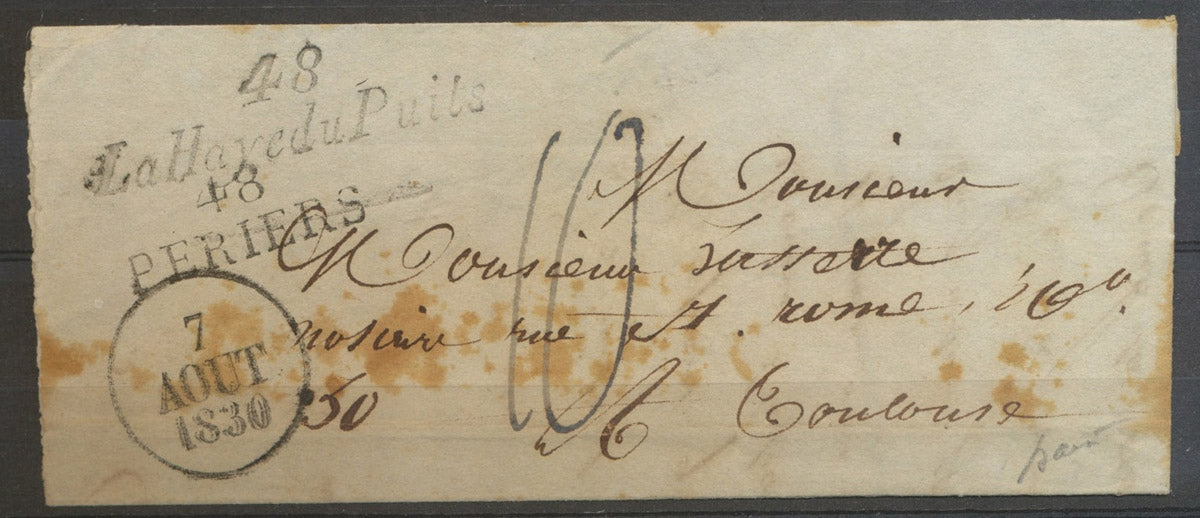 48
La Haye du Puits
48
PERIERS
7
AOUT
1830
10
Monsieur
Monsieur Lasserre
notaire rue St. rome, No.
50
A Toulouse